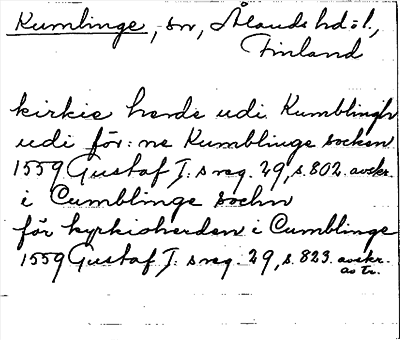 Kumlinge, sn, Ålands hd = l.,
Finland
kirkie herde udi Kumblingh
udi för: ne Kumblinge socken
1559 Gustaf I: s reg. 29, s. 802. avskr.
i Cumblinge sochn
för kyrkioherden i Cumblinge
1559 Gustaf I: s reg. 29, s. 823. avskr.
av tr.